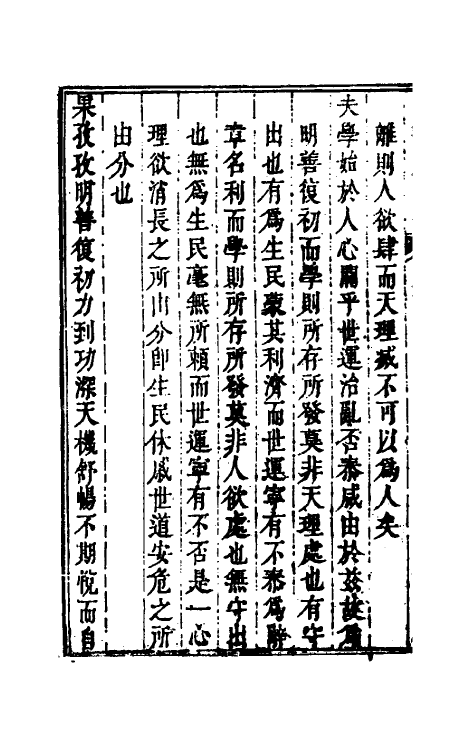 離則人欲肆而天理滅不可以為人矣
夫學始於人心關乎世運治亂否泰咸由於茲故為
明善復初而學則所存所發莫非天理處也有守
出也有為生民蒙其利濟而世運寧有不泰為辭
章名利而學則所存所發莫非人欲處也無守出
也無為生民毫無所賴而世運寧有不否是一心
理欲消長之所由分即生民休戚世道安危之所
由分也
果孜孜明善復初力到功深天機舒暢不期悅而自